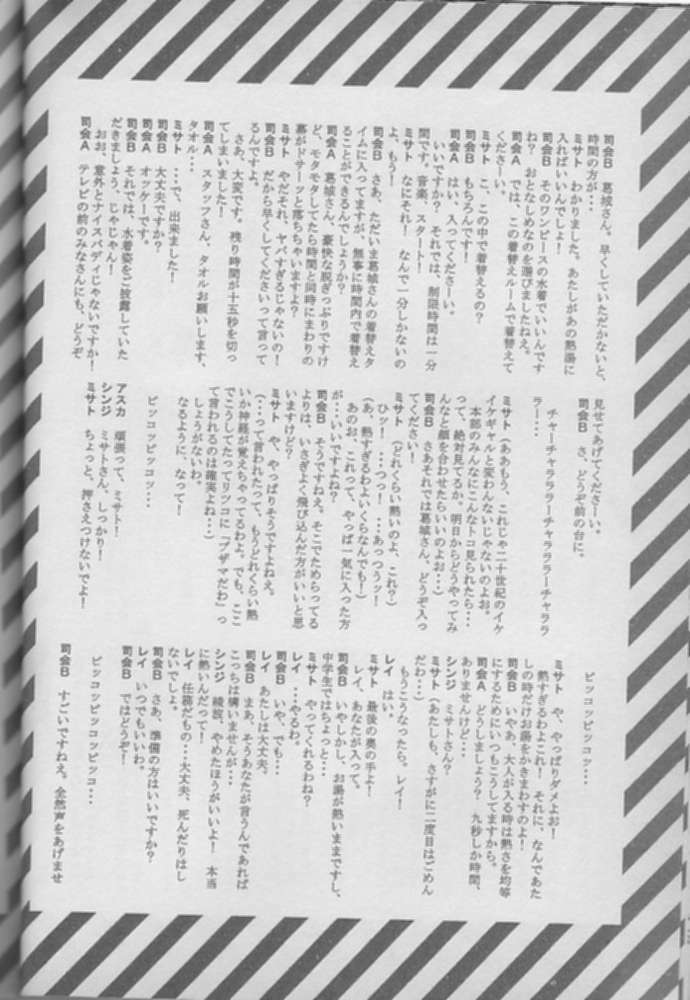 司会B　葛城さん。早くしていただかないと、
時間の方が…
ミサト　わかりました。あたしがあの熱湯に
入ればいいんでしょ！
司会B　そのワンピースの水着でいいんです
ね？　おとなしめなのを選びましたねえ。
司会A　では、この着替えルームで着替えて
くださーい。
ミサト　こ、この中で着替えるの？
司会B　もちろんです！
司会A　はい、入ってくださーい。
いいですか？　それでは、制限時間は一分
間です。音楽、スタート！
ミサト　なにそれ！　なんで一分しかないの
よ、もう！
司会B　さあ、ただいま葛城さんの着替えタ
イムに入ってますが、無事に時間内で着替え
ることができるんでしょうか？
司会A　葛城さん、豪快な脱ぎっぷりですけ
ど、モタモタしてたら時間と同時にまわりの
幕がドサーッと落ちちゃいますよ？
ミサト　やだそれ、ヤバすぎるじゃないの！
司会B　だから早くしてくださいって言って
るんですよ。
さあ、大変です。残り時間が十五秒を切っ
てしまいました！
司会A　スタッフさん、タオルお願いします、
タオル…
ミサト　…で、出来ました！
司会B　大丈夫ですか？
司会A　オッケーです。
司会B　それでは、水着姿をご披露していた
だきましょう、じゃじゃん！
おお、意外とナイスバディじゃないですか！
司会A　テレビの前のみなさんにも、どうぞ
見せてあげてくださーい。
司会B　さ、どうぞ前の台に。
チャーチャラララーチャラララーチャララ
ラー…
ミサト（ああもう、これじゃ二十世紀のイケ
イケギャルと変わんないじゃないのよお。
本部のみんなにこんなトコ見られたら…
って、絶対見てるか、明日からどうやってみ
んなと顔を合わせたらいいのよお…）
司会B　さあそれでは葛城さん、どうぞ入っ
てください！
ミサト　（どれくらい熱いのよ、これ？）
ひッ！　…つっ！　…あっつうッ！
（あ、熱すぎるわよいくらなんでも！）
あのお、これって、やっぱ一気に入った方
が…いいですよね？
司会B　そうですねえ。そこでためらってる
よりは、いさぎよく飛び込んだ方がいいと思
いますけど？
ミサト　や、やっぱりそうですよねえ。
（…って言われたって、もうどれくらい熱
いか神経が覚えちゃってるわよ。でも、ここ
でこうしてたってリツコに「ブザマだわ」っ
て言われるのは確実よね…）
しょうがないわ。
なるように、なって！
ピッコッピッコッ…
アスカ　頑張って、ミサト！
シンジ　ミサトさん、しっかり！
ミサト　ちょっと、押さえつけないでよ！
ピッコッピッコッ…
ミサト　や、やっぱりダメよお！
熱すぎるわよこれ！　それに、なんであた
しの時だけお湯をかきまわすのよ！
司会B　いやあ、大人が入る時は熱さを均等
にするためにいつもこうしてますから。
司会A　どうしましょう？　九秒しか時間、
ありませんけど…
シンジ　ミサトさん？
ミサト（あたしも、さすがに二度目はごめん
だわ…）
もうこうなったら。レイ！
レイ　はい。
ミサト　最後の奥の手よ！
レイ、あなたが入って。
司会B　いやしかし、お湯が熱いままですし、
中学生ではちょっと…
ミサト　やってくれるわね？
レイ　…やるわ。
司会B　いや、でも…
レイ　あたしは大丈夫。
司会B　まあ、そうあなたが言うんであれば
こっちは構いませんが…
シンジ　綾波、やめたほうがいいよ！　本当
に熱いんだって！
レイ　任務だもの…大丈夫、死んだりはし
ないでしょ。
司会B　さあ、準備の方はいいですか？
レイ　いつでもいいわ。
司会B　ではどうぞ！
ピッコッピッコッピッコ…
司会B　すごいですねえ。全然声をあげませ